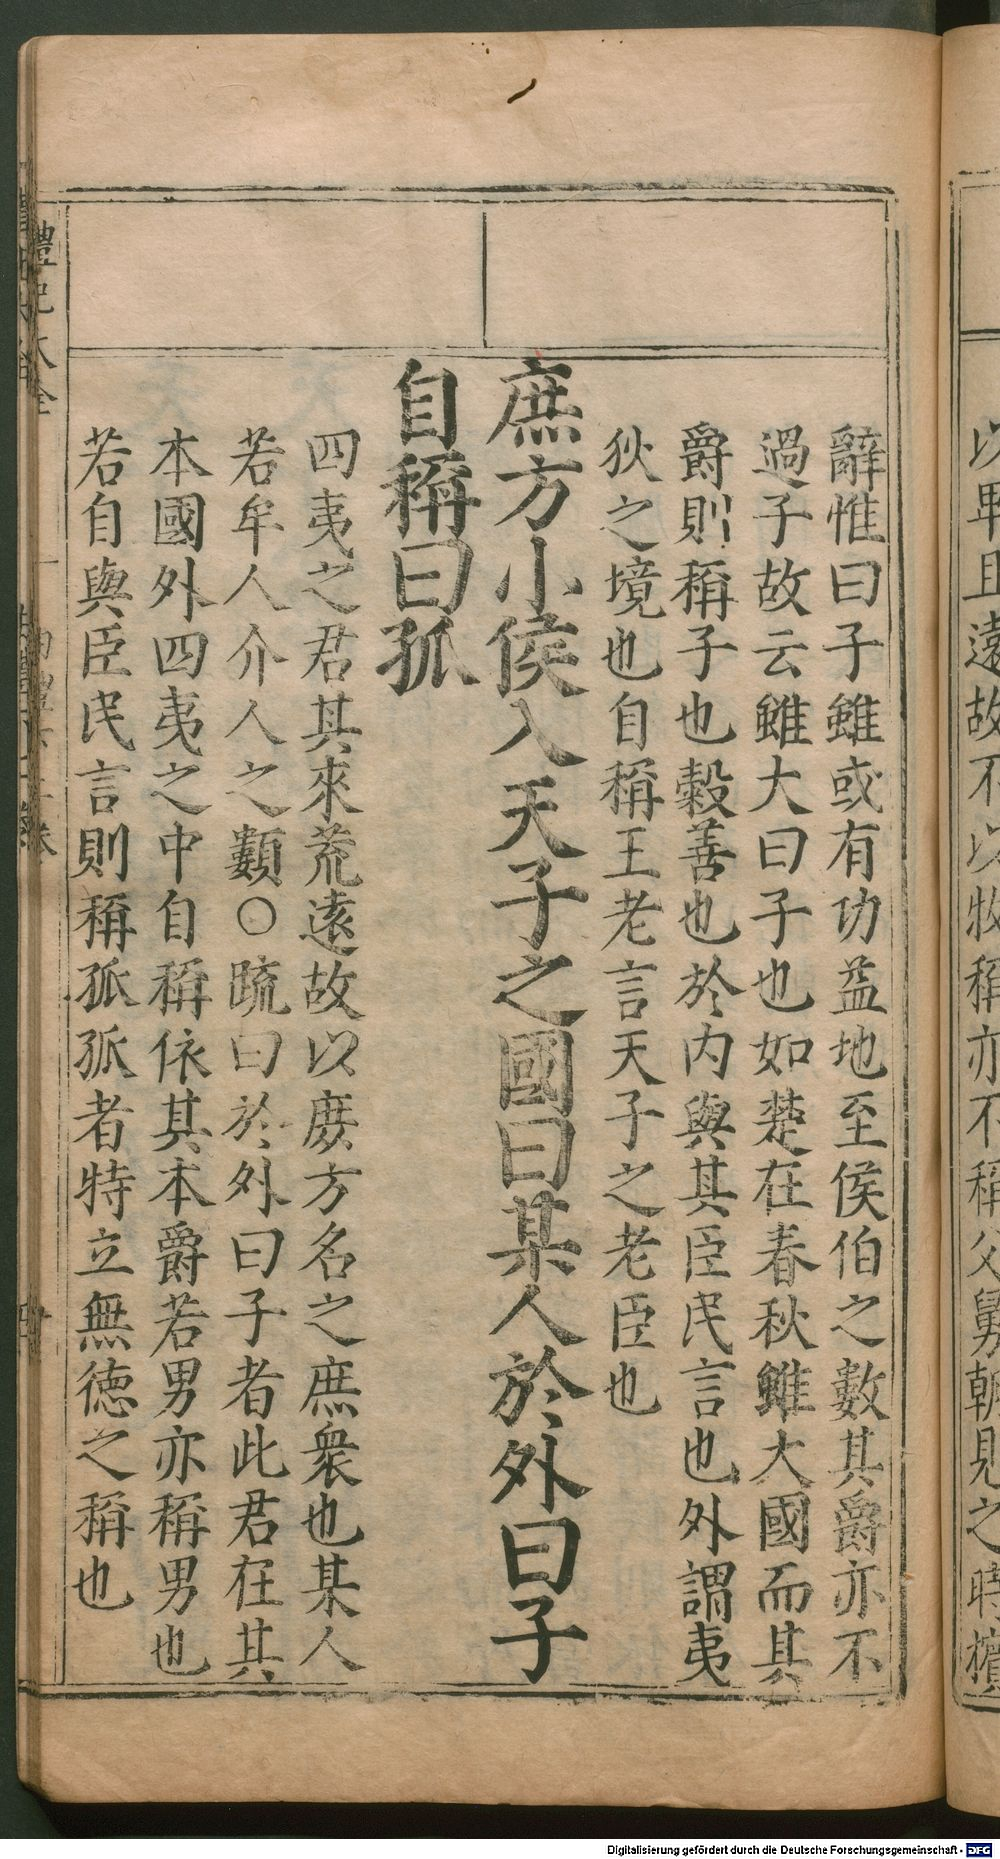 以卑且遠故不以牧稱亦不稱父舅朝見之時擯
辭惟曰子雖或有功益地至侯伯之數其爵亦不
過子故云雖大曰子也如楚在春秋雖大國而其
爵則稱子也穀善也於內與其臣民言也外謂夷
狄之境也自稱王老言天子之老臣也
庶方小侯入天子之國曰某人於外曰子
自稱曰孤
四夷之君其來荒遠故以庶方名之庶衆也某人
若牟人介人之類○疏曰於外曰子者此君在其
本國外四夷之中自稱依其本爵若男亦稱男也
若自與臣民言則稱孤孤者特立無德之稱也
禮記大全
Digitalisierung gefördert durch die Deutsche Forschungsgemeinschaft - DFG